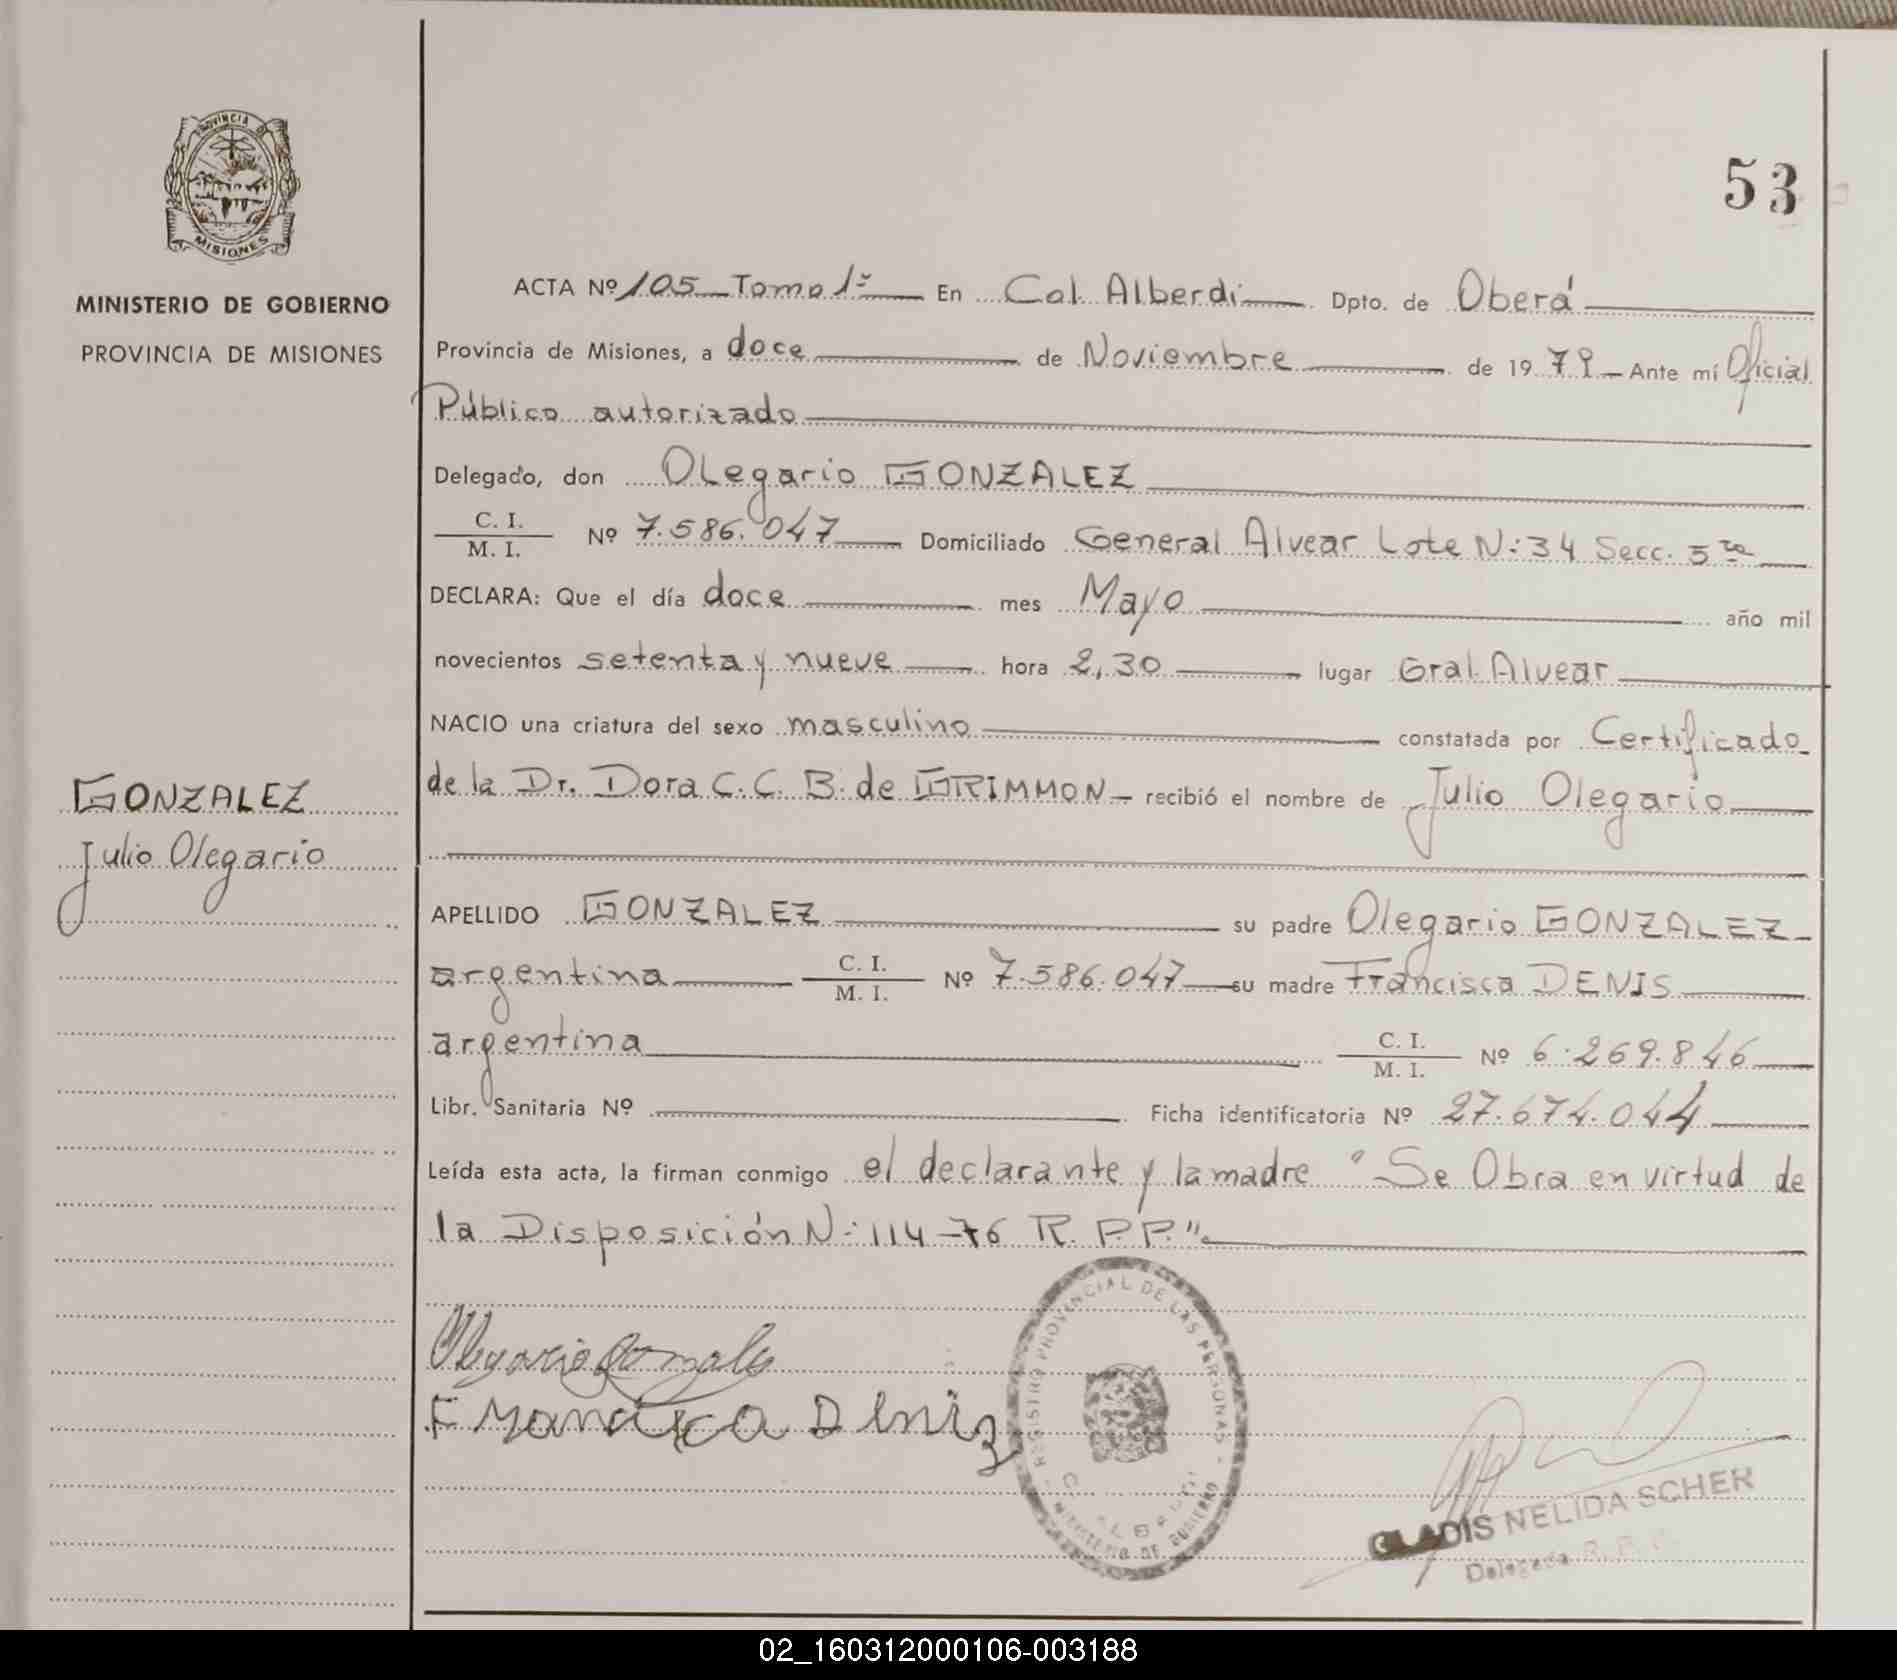 53
PROVINCIA DE
MISIONES
MINISTERIO DE GOBIERNO
PROVINCIA DE MISIONES
ACTA Nº 105 Tomo 1º En Col. Alberdi Dpto. de Oberá
Provincia de Misiones, a doce de Noviembre de 1979 Ante mí Oficial
Público autorizado
Delegado, don Olegario GONZALEZ
C. I.
M. I. Nº 7.586.047 Domiciliado General Alvear Lote N: 34 Secc. 5ta
DECLARA: Que el día doce mes Mayo año mil
novecientos setenta y nueve hora 2,30 lugar Gral. Alvear
NACIO una criatura del sexo masculino constatada por Certificado
de la Dr. Dora C. C. B. de GRIMMON recibió el nombre de Julio Olegario
GONZALEZ
Julio Olegario
APELLIDO GONZALEZ su padre Olegario GONZALEZ
argentina C. I.
M. I. Nº 7.586.047 su madre Francisca DENIS
argentina C. I.
M. I. Nº 6.269.846
Libr. Sanitaria Nº Ficha identificatoria Nº 27.674.044
Leída esta acta, la firman conmigo el declarante y la madre "Se Obra en virtud de
la Disposición N: 114-76 R. P. P."
Olegario Gonzales
Francisca Deniz
REGISTRO PROVINCIAL DE LAS PERSONAS
MINISTERIO DE GOBIERNO
GLADIS NELIDA SCHER
Delegada R. P. P.
02_160312000106-003188